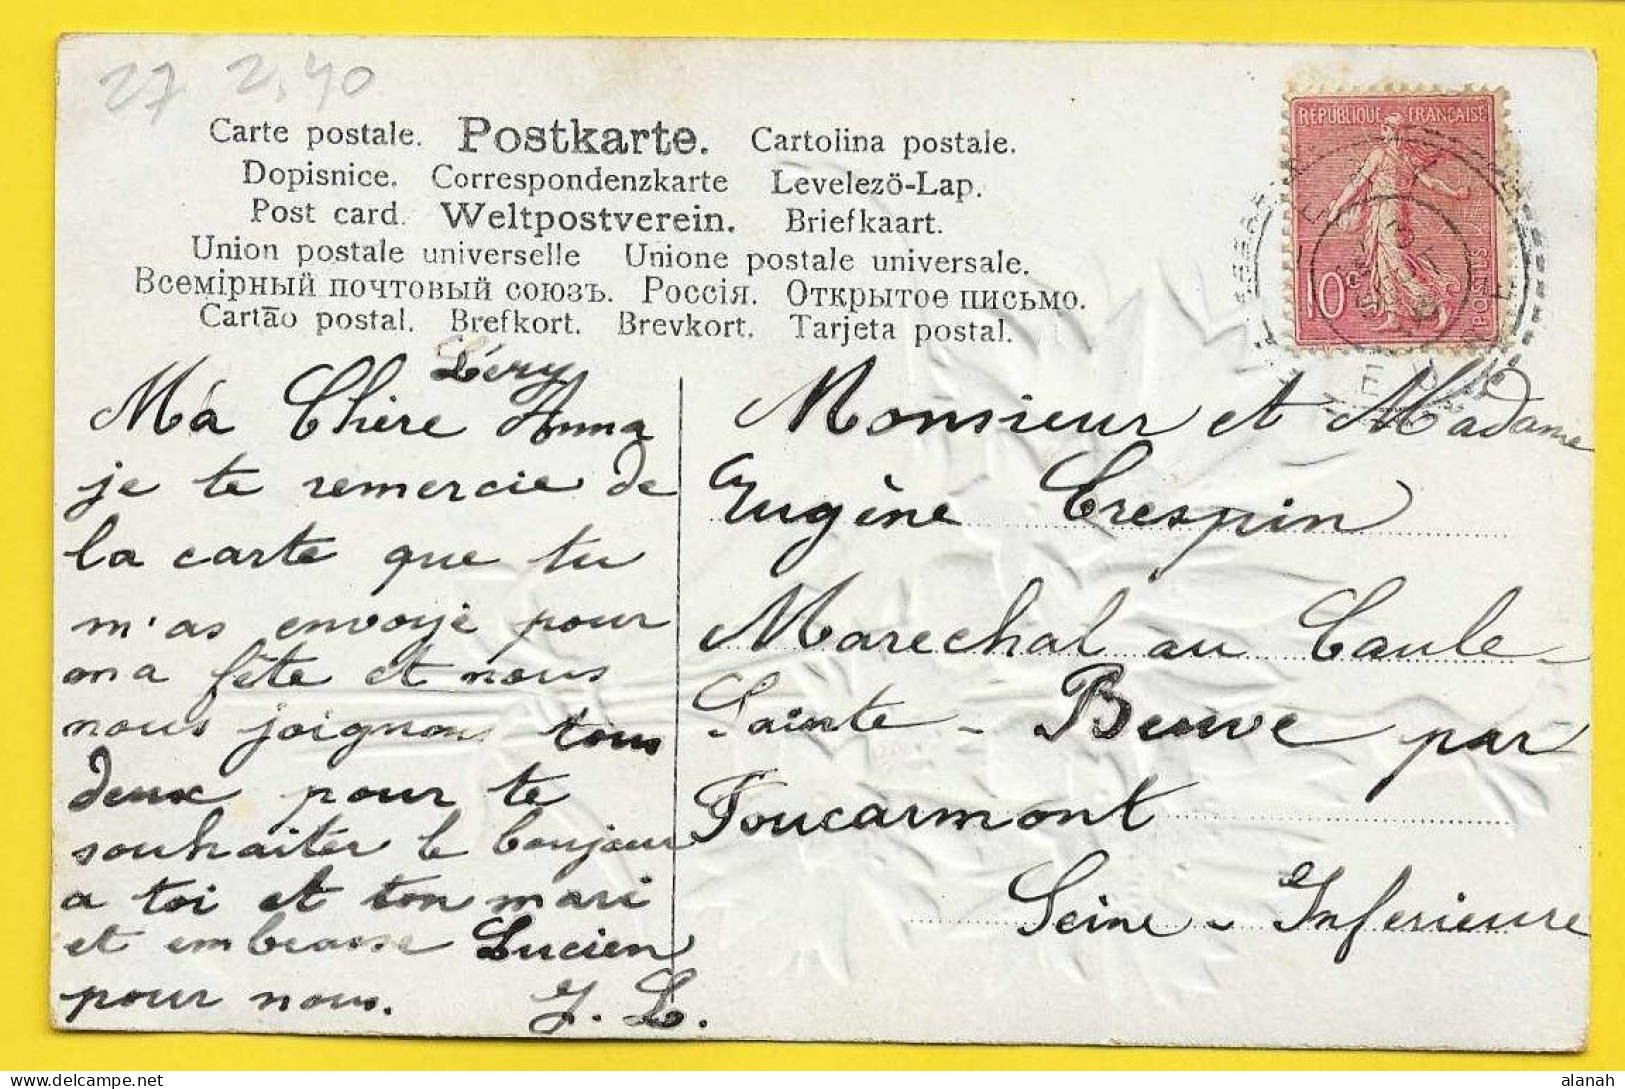 27 2,40
Carte postale. Postkarte. Cartolina postale.
Dopisnice. Correspondenzkarte Levelezö-Lap.
Post card. Weltpostverein. Briefkaart.
Union postale universelle Unione postale universale.
Всемірный почтовый союзъ. Россія. Открытое письмо.
Cartāo postal. Brefkort. Brevkort. Tarjeta postal.
RÉPUBLIQUE FRANÇAISE
10c
POSTES
Léry
Ma Chère Anna
je te remercie de
la carte que tu
m'as envoyé pour
ma fête et nous
nous joignons tous
deux pour te
souhaiter le bonjour
a toi et ton mari
et embrasse Lucien
pour nous. J. L.
Monsieur et Madame
Eugène Crespin
Marechal au Caule-
Sainte-Beuve par
Foucarmont
Seine-Inferieure
alanah